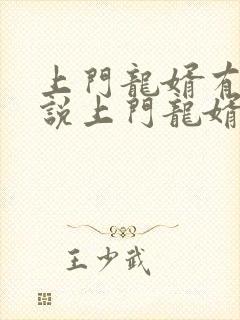 上門龍婿有
說上門龍婿
王少武